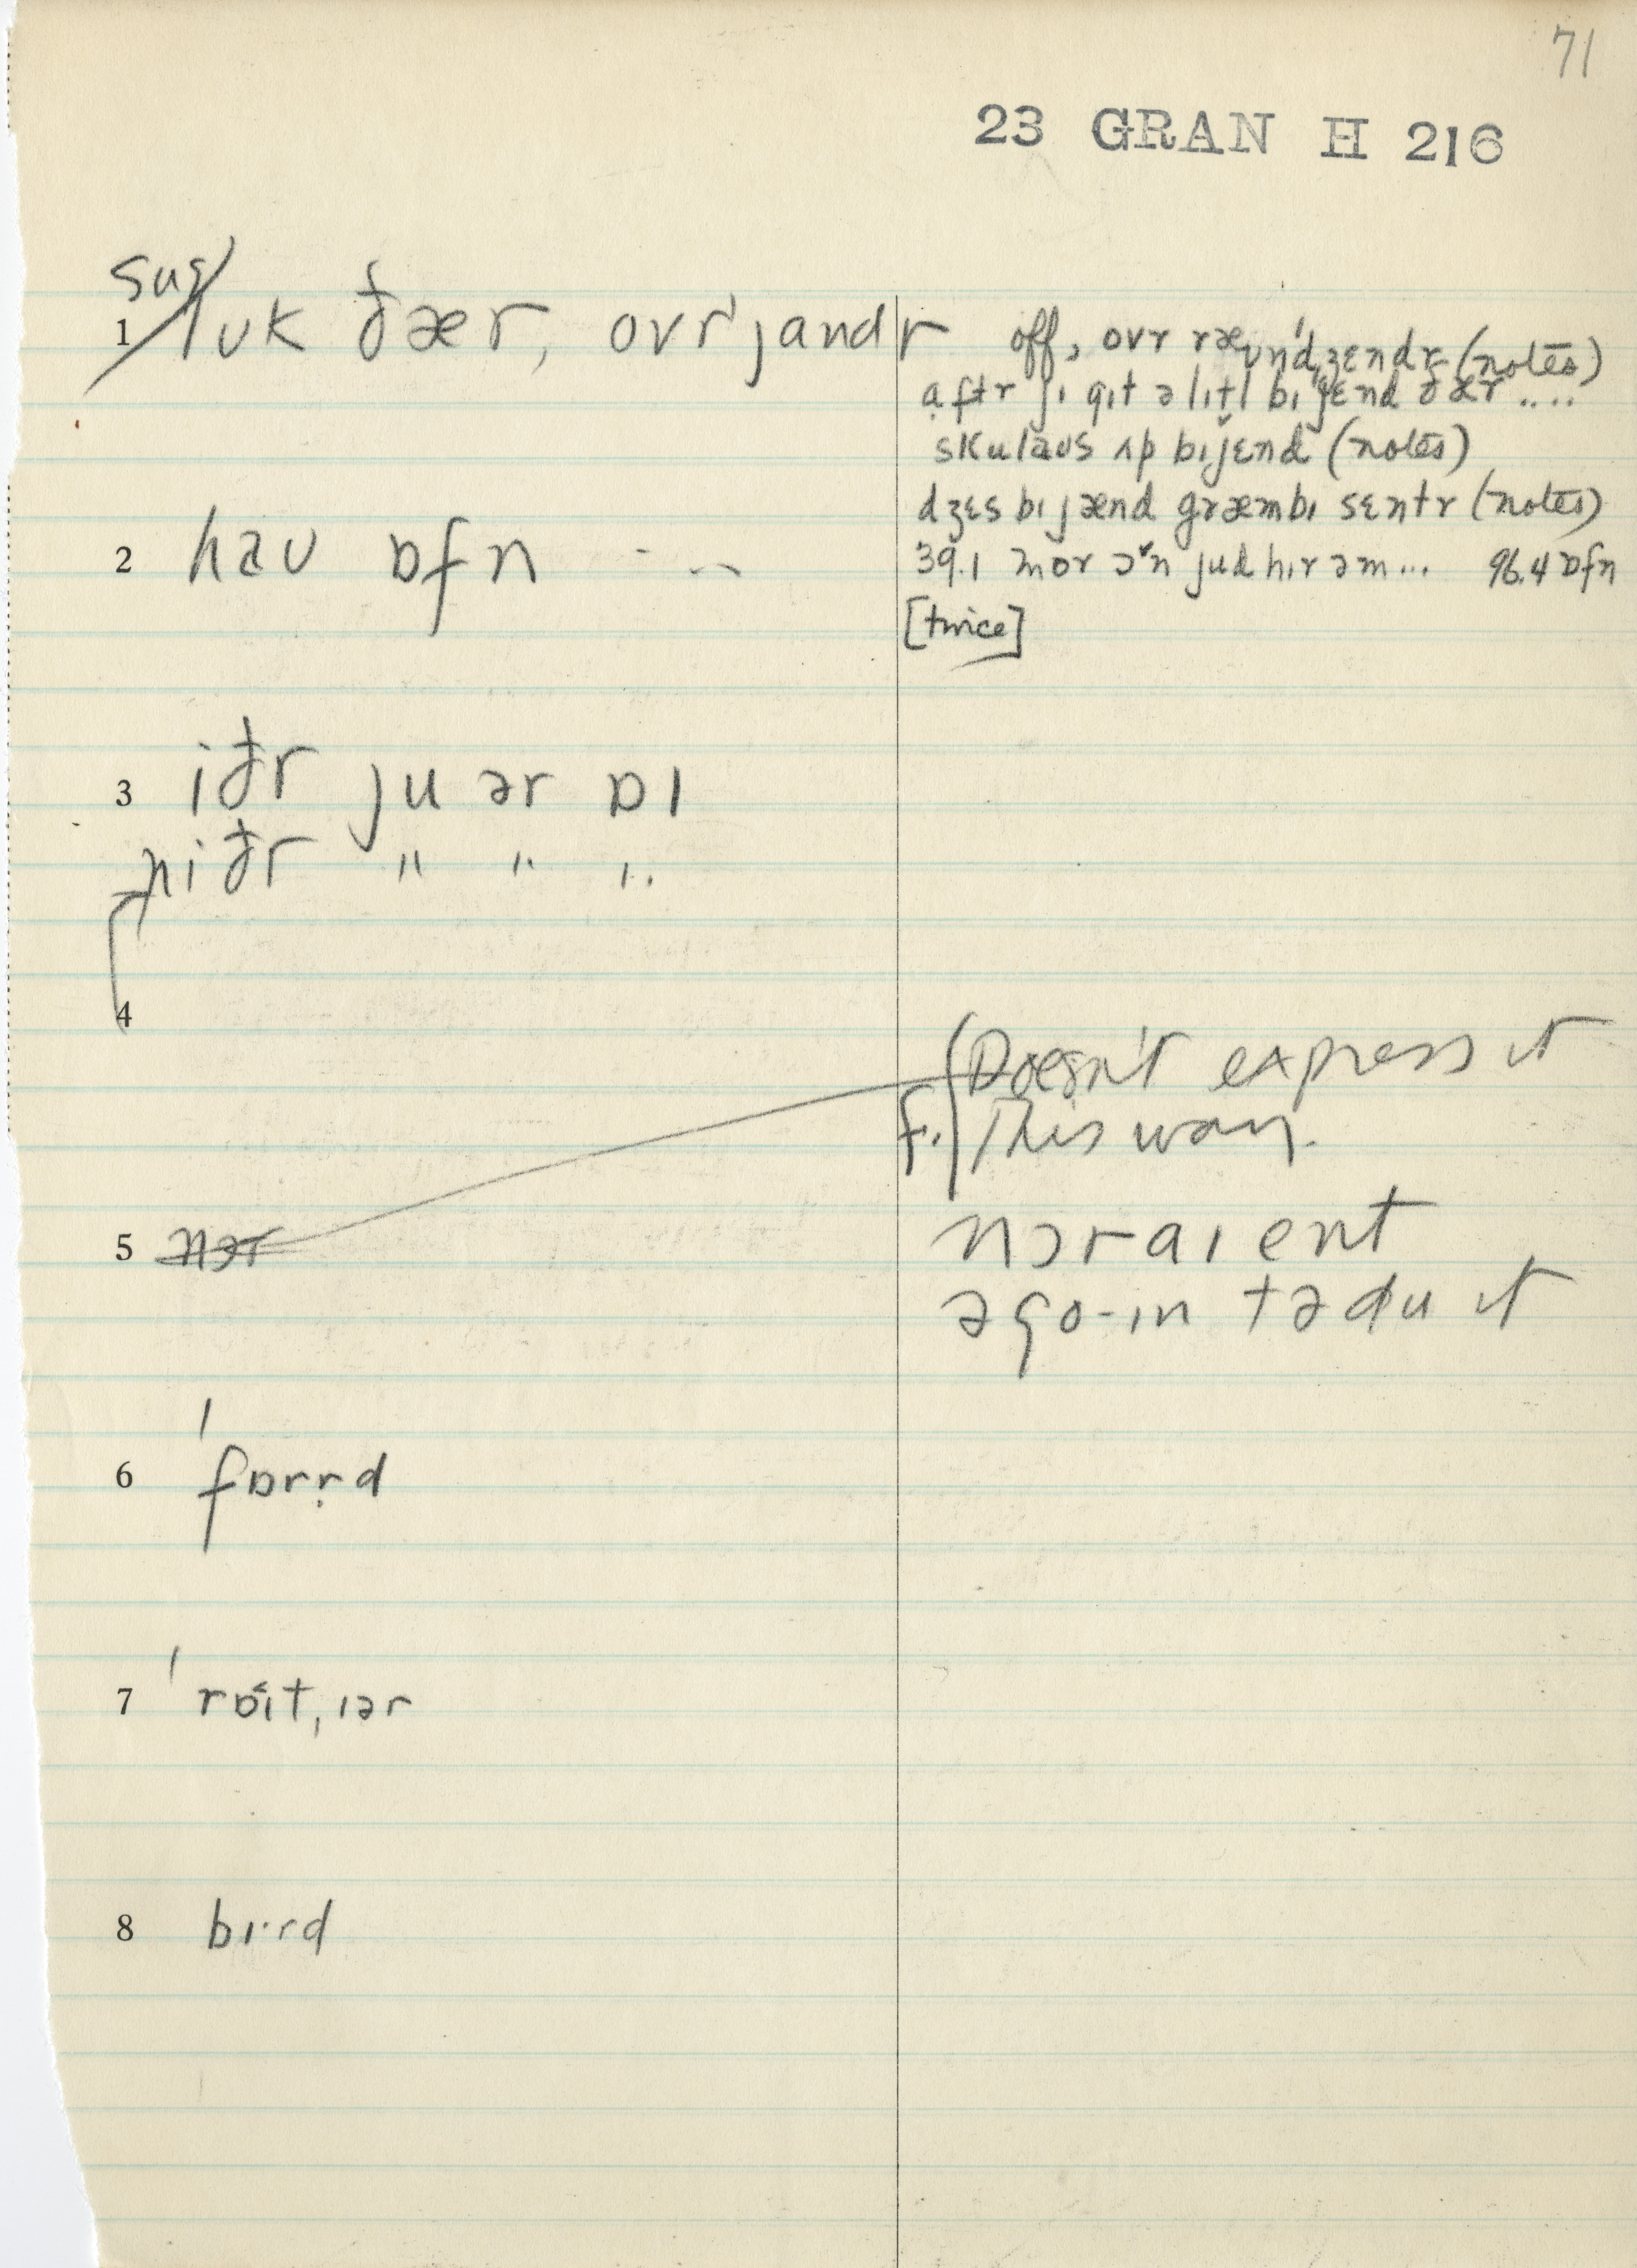 71
23 GRAN H 216
sug/
1 lʊk ðær, ovr'jandr
off, ovr ræʊn'dʒɛndr (notes)
aftr ji git ə lɪtl bɪjɛnd ðær ....
skulaʊs ʌp bɪjɛnd (notes)
dʒɛs bɪjænd græmbɪ sɛntr (notes)
2 haʊ ɒfn - --
39.1 mor ə˅n jud hɪr əm... 96.4 ɒfn
[twice]
3 iðr ju ər ɒɪ
niðr " " "
4
(Doesn't express it
f. This way.
5 nɔr
nɔr aɪ ent
ə go-ɪn tə du it
6 'fɒrṛd
7 'rɒɪt,ɪər
8 bɪ·rd